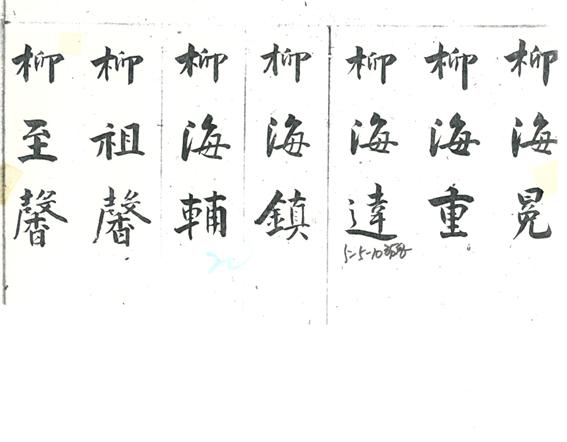 柳海晃
柳海重
柳海達
柳海鎮
柳海輔
柳祖馨
柳至馨